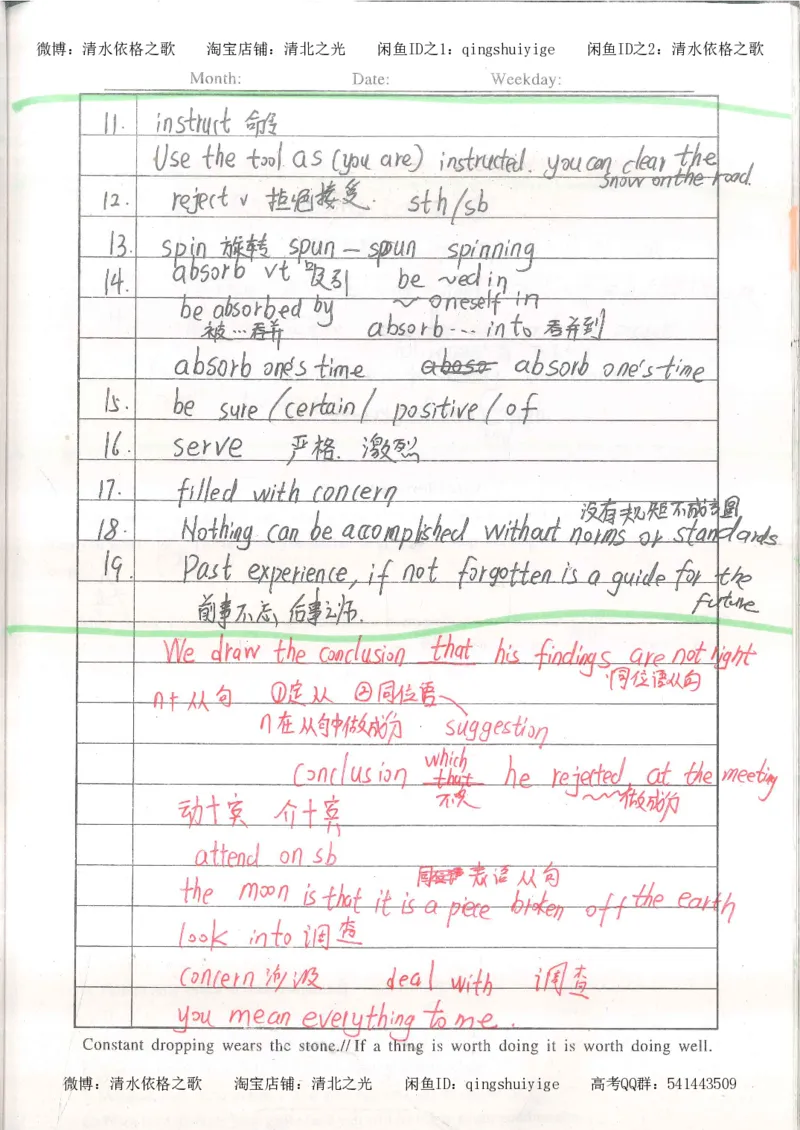 微博：清水依格之歌 淘宝店铺：清北之光 闲鱼ID之1：qingshuiyige 闲鱼ID之2：清水依格之歌
Month: Date: Weekday:
11. instruct 命令
Use the tool as (you are) instructed. you can clear the
snow on the road.
12. reject v 拒绝接受. sth/sb
13. spin 旋转 spun — spun spinning
14. absorb vt 吸引 be ~ed in
be absorbed by ~ oneself in
被…吞并 absorb… into 吞并到
absorb one's time absorb one's time
15. be sure / certain / positive / of
16. serve 严格. 激烈
17. filled with concern
没有规矩不成方圆
18. Nothing can be accomplished without norms or standards
19. Past experience, if not forgotten is a guide for the
future
前事不忘、后事之师.
We draw the conclusion that his findings are not right
同位语从句
n+从句 ①定从 ②同位语
n在从句中做成分 suggestion
which
conclusion that he rejected at the meeting
不久 做成分
动+宾 介+宾
attend on sb
表语从句
the moon is that it is a piece broken off the earth
look into 调查
concern 涉及 deal with 调查
you mean everything to me.
Constant dropping wears the stone.//If a thing is worth doing it is worth doing well.
微博：清水依格之歌 淘宝店铺：清北之光 闲鱼ID：qingshuiyige 高考QQ群：541443509